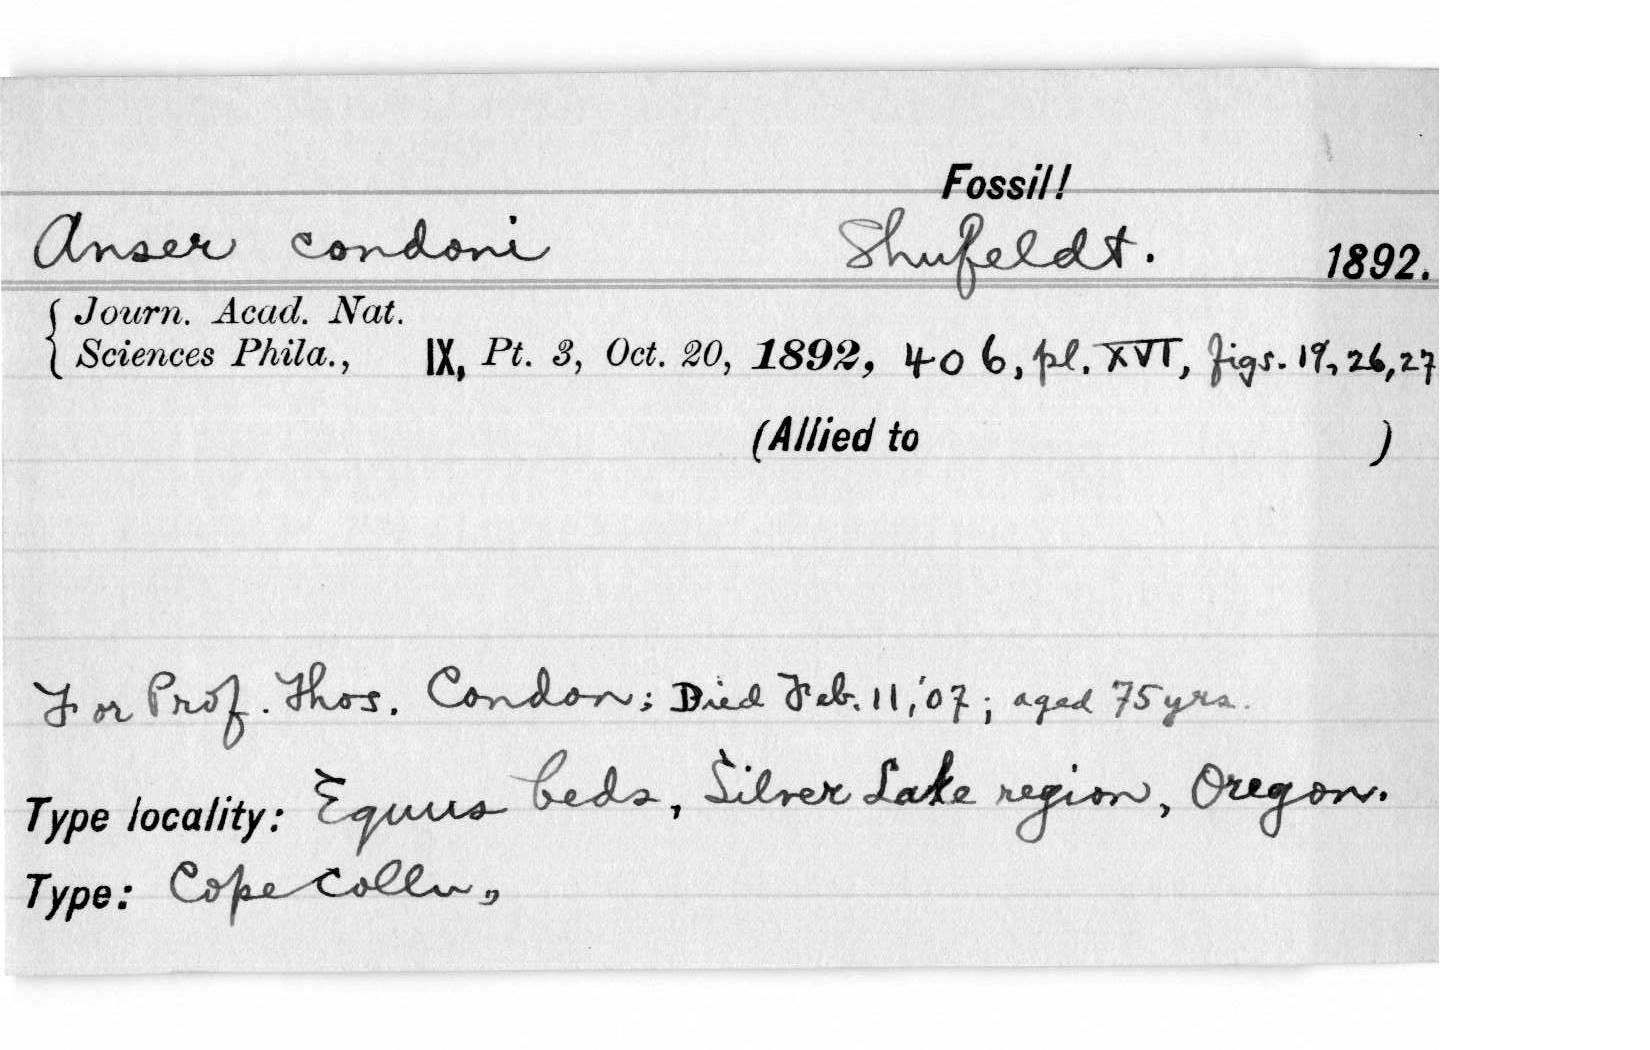 Fossil!
Anser condoni Shufeldt. 1892.
Journ. Acad. Nat.
Sciences Phila., IX, Pt. 3, Oct. 20, 1892, 406, pl. XVI, figs. 19, 26, 27
(Allied to )
For Prof. Thos. Condon; Died Feb. 11, '07; aged 75 yrs.
Type locality: Equus beds, Silver Lake region, Oregon.
Type: Cope Colln,